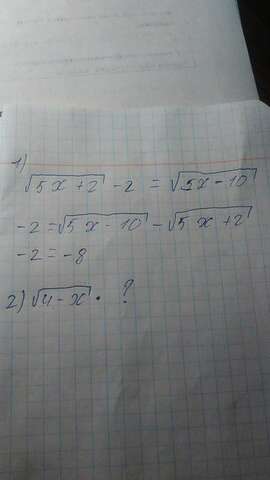 1)
√5x+2 - 2 = √5x-10
-2 = √5x-10 - √5x+2
-2 = -8
2) √4-x · ?